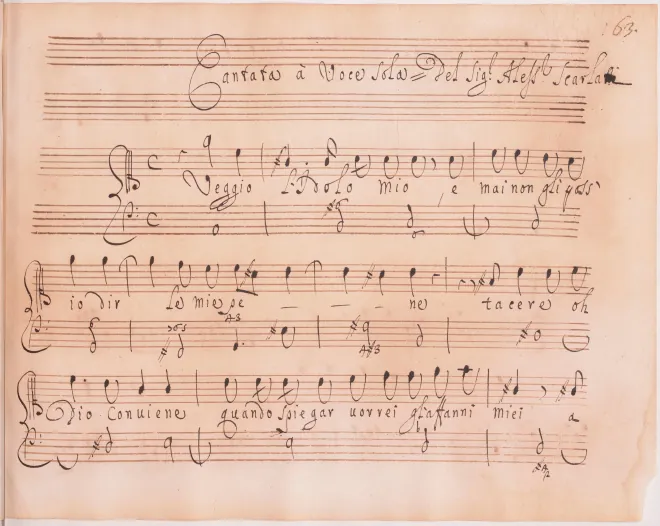 163.
Cantata à Voce Sola = Del Sig.r Aless.o Scarlatti
Veggio L'Idolo mio , e mai non gli poss'
io dir le mie pe - - - ne tacere oh
Dio Conviene quando spiegar uorrei gl'affanni miei a